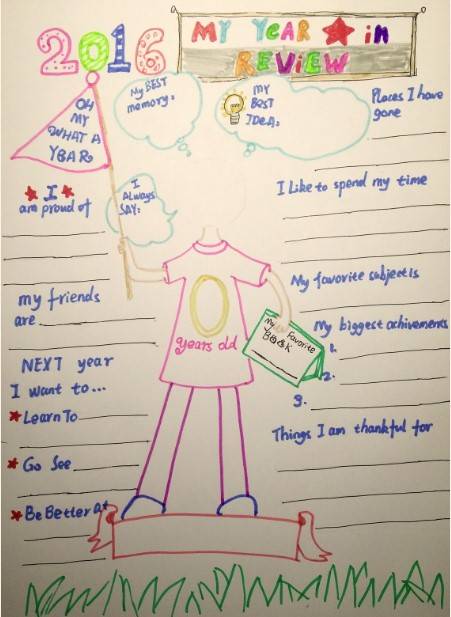 2016
MY YEAR in
REVIEW
OH
MY
WHAT A
YEAR.
My BEST
memory:
MY
BEST
IDEA:
Places I have
gone
I
am proud of
I
ALWAYS
SAY:
I Like to spend my time
my friends
are
My favorite subject is
My Favorite
BOOK
My biggest achivements
1.
2.
3.
0
years old
NEXT year
I want to...
Learn To
Go See
Be Better at
Things I am thankful for